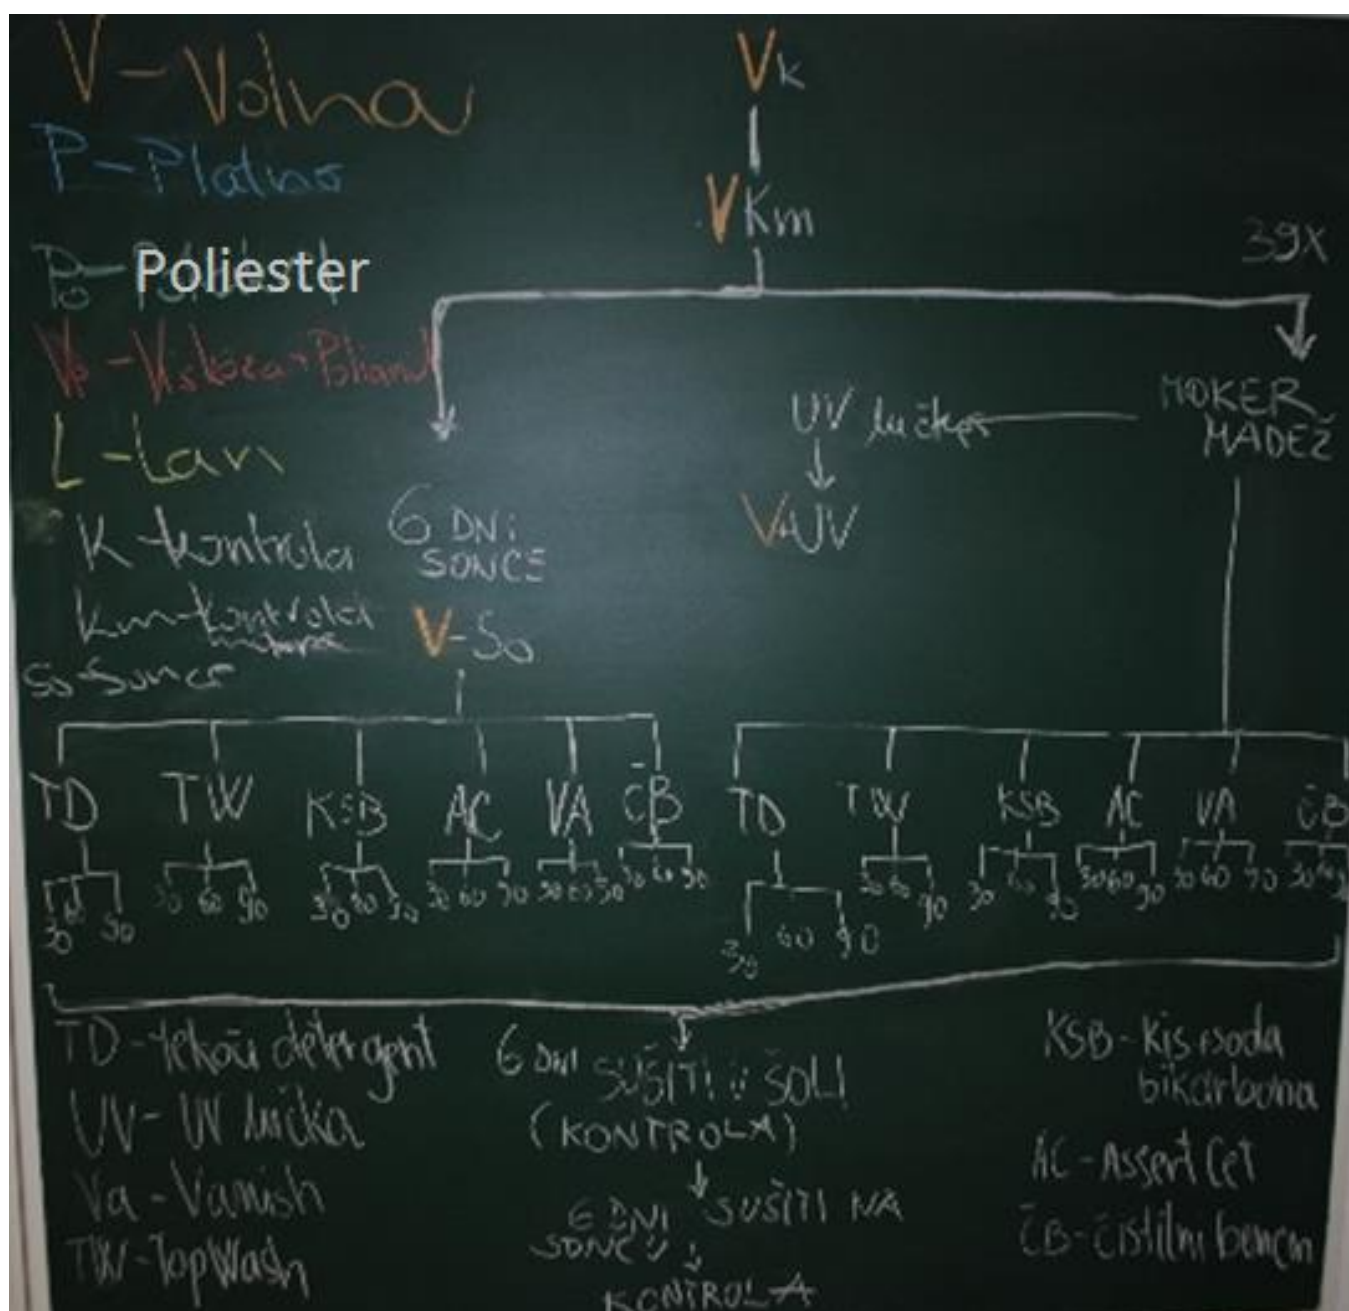 V-Volna
P-Platno
Po- Poliester
Vp-Viskoza-Poliamid
L-Lan
K-kontrola
km-kontrola
So-Sonce
Vk
VKm
39X
MOKER
MADEŽ
UV lučka
V-UV
6 DNI
SONCE
V-So
TD TW KSB AC VA ČB
30 60 90 30 60 90 30 60 90 30 60 90 30 60 90 30 60 90
TD TW KSB AC VA ČB
30 60 90 30 60 90 30 60 90 30 60 90 30 60 90 30 60 90
TD-tekoči detergent
UV-UV lučka
Va-Vanish
TW-TopWash
6 DNI SUŠITI V ŠOLI
(KONTROLA)
6 DNI SUŠITI NA
SONCU
KONTROLA
KSB-Kis+soda
bikarbona
AC-Assert Cet
ČB-čistilni bencin